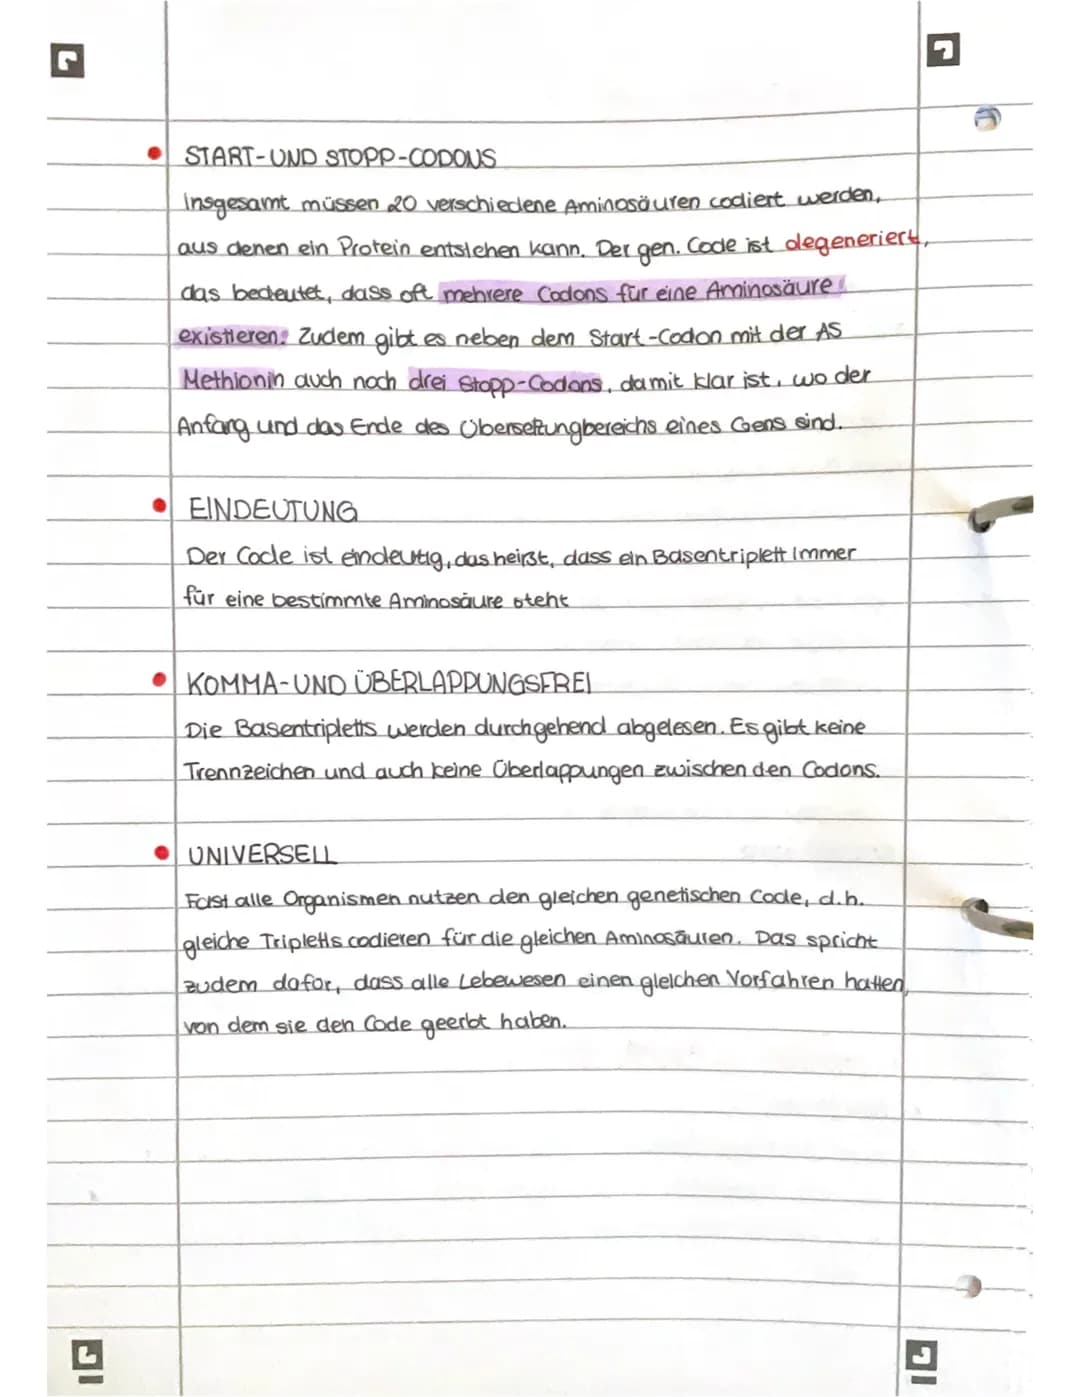 START-UND STOPP-CODONS
Insgesamt müssen 20 verschiedene Aminosäuren codiert werden,
aus denen ein Protein entstehen kann. Der gen. Code ist degeneriert,
das bedeutet, dass oft mehrere Codons für eine Aminosäure
existieren. Zudem gibt es neben dem Start-Codon mit der AS
Methionin auch noch drei Stopp-Codons, damit klar ist, wo der
Anfang und das Ende des Übersetzungbereichs eines Gens sind.
EINDEUTUNG
Der Code ist eindeutig, das heißt, dass ein Basentriplett immer
für eine bestimmte Aminosäure steht
KOMMA-UND ÜBERLAPPUNGSFREI
Die Basentripletts werden durchgehend abgelesen. Es gibt keine
Trennzeichen und auch keine Überlappungen zwischen den Codons.
UNIVERSELL
Fast alle Organismen nutzen den gleichen genetischen Code, d.h.
gleiche Tripletts codieren für die gleichen Aminosäuren. Das spricht
zudem dafür, dass alle Lebewesen einen gleichen Vorfahren hatten,
von dem sie den Code geerbt haben.